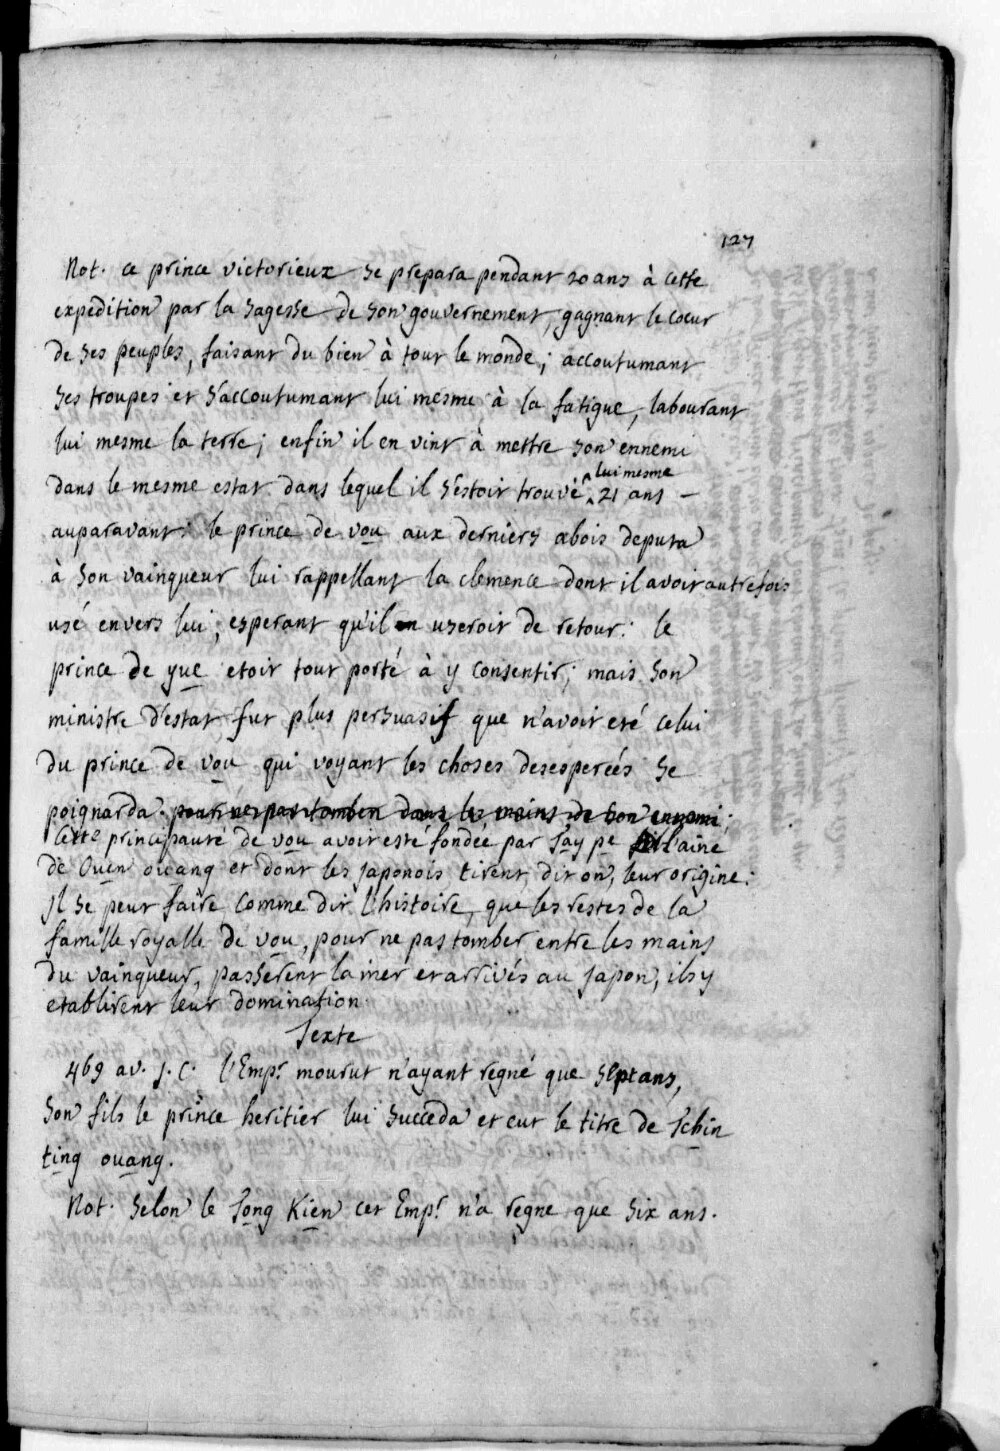 127
Not. ce prince victorieux se prepara pendant 20 ans à cette
expedition par la sagesse de son gouvernement, gagnant le coeur
de ses peuples, faisant du bien à tout le monde; accoutumant
ses troupes et s'accoutumant lui mesme à la fatigue, labourant
lui mesme la terre; enfin il en vint à mettre son ennemi
dans le mesme estat dans lequel il s'estoit trouvé lui mesme 21 ans
auparavant. le prince de vou aux derniers abois deputa
à son vainqueur lui rappellant la clemence dont il avoit autrefois
usé envers lui, esperant qu'il en useroit de retour: le
prince de yue etoit tout porté à y consentir; mais son
ministre d'estat fut plus persuasif que n'avoit eté celui
du prince de vou qui voyant les choses desesperées se
poignarda. pour ne pas tomber dans les mains de son ennemi;
Cette principauté de vou avoit esté fondée par Tay pe l'ainé
de Ouen ouang et dont les japonois tirent, dit on, leur origine:
Il se peut faire comme dit l'histoire, que les restes de la
famille royalle de vou, pour ne pas tomber entre les mains
du vainqueur, passerent la mer et arrivés au Japon, ils y
etablirent leur domination.
Texte
469 av. J. C. l'Emp.r mourut n'ayant regné que sept ans,
son fils le prince heritier lui succeda et eut le titre de Tchin
ting ouang.
Not. Selon le Tong Kien cet Emp.r n'a regne que six ans.